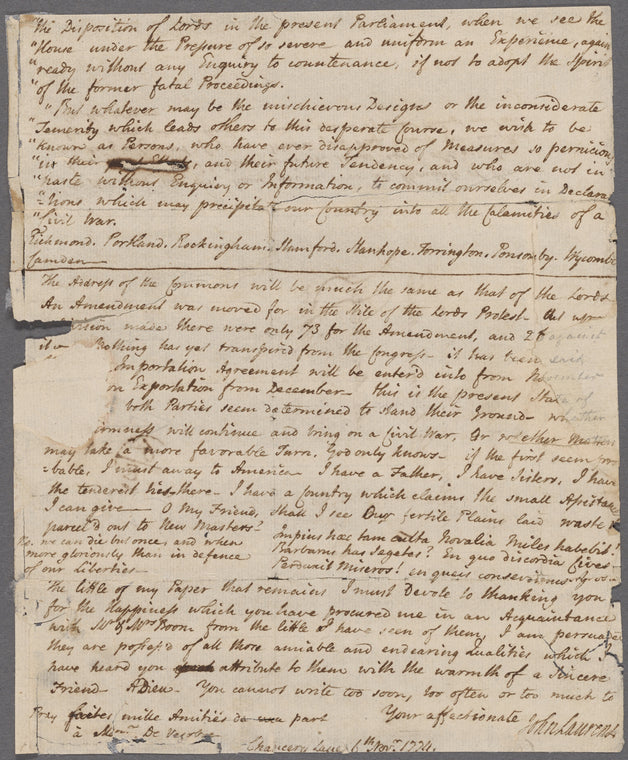 "the Disposition of Lords in the present Parliament, when we see the
"House under the Pressure of so severe and uniform an Experience, again
"ready without any Enquiry to countenance, if not to adopt the Spirit
"of the former fatal Proceedings.
"But whatever may be the mischievous Designs or the inconsiderate
"Temerity which leads others to this desperate Course, we wish to be
"known as Persons, who have ever disapproved of Measures so pernicious
"in their , and their future Tendency, and who are not in
"haste without Enquiry or Information, to commit ourselves in Declara
"-tions which may precipitate our Country into all the Calamities of a
"Civil War.
Richmond. Portland. Rockingham. Stamford. Stanhope. Torrington. Ponsonby. Wycombe
Camden—
The Address of the Commons will be much the same as that of the Lords—
An Amendment was moved for in the Stile of the Lords Protest— But upon
made there were only 73 for the Amendment, and 2 against
it— Nothing has yet transpired from the Congress— it has been said
Importation Agreement will be enter'd into from November
on Exportation from December— this is the present State of
both Parties seem determined to stand their Ground— whether
irmness will continue and bring on a Civil War, Or whether Matters
may take a more favorable Turn, God only knows— if the first seem pro
-bable, I must away to America— I have a Father, I have Sisters, I have
the tenderest ties there— I have a Country which claims the small Assistance
I can give— O my Friend, shall I see Our fertile Plains laid waste &
parcel'd out to New Masters?
Impius hæc tam culta Novalia Miles habebit!
Barbarus has Segetes? En quo discordia Cives
Perduxit Miseros! en queis consevimus Agros—
No. we can die but once, and when
more gloriously than in defence
of our Liberties—
The little of my Paper that remains I must devote to thanking you
for the Happiness which you have procured me in an Acquaintance
with Mr. & Mrs. from the little I have seen of them, I am persuaded
they are possess'd of all those amiable and endearing Qualities which I
have heard you attribute to them with the warmth of a Sincere
Friend— Adieu— You cannot write too soon, too often or too much to
Your affectionate John Laurens
Pray faites mille Amitiés de part
à
Chancery Lane 6th. Novr. 1774.